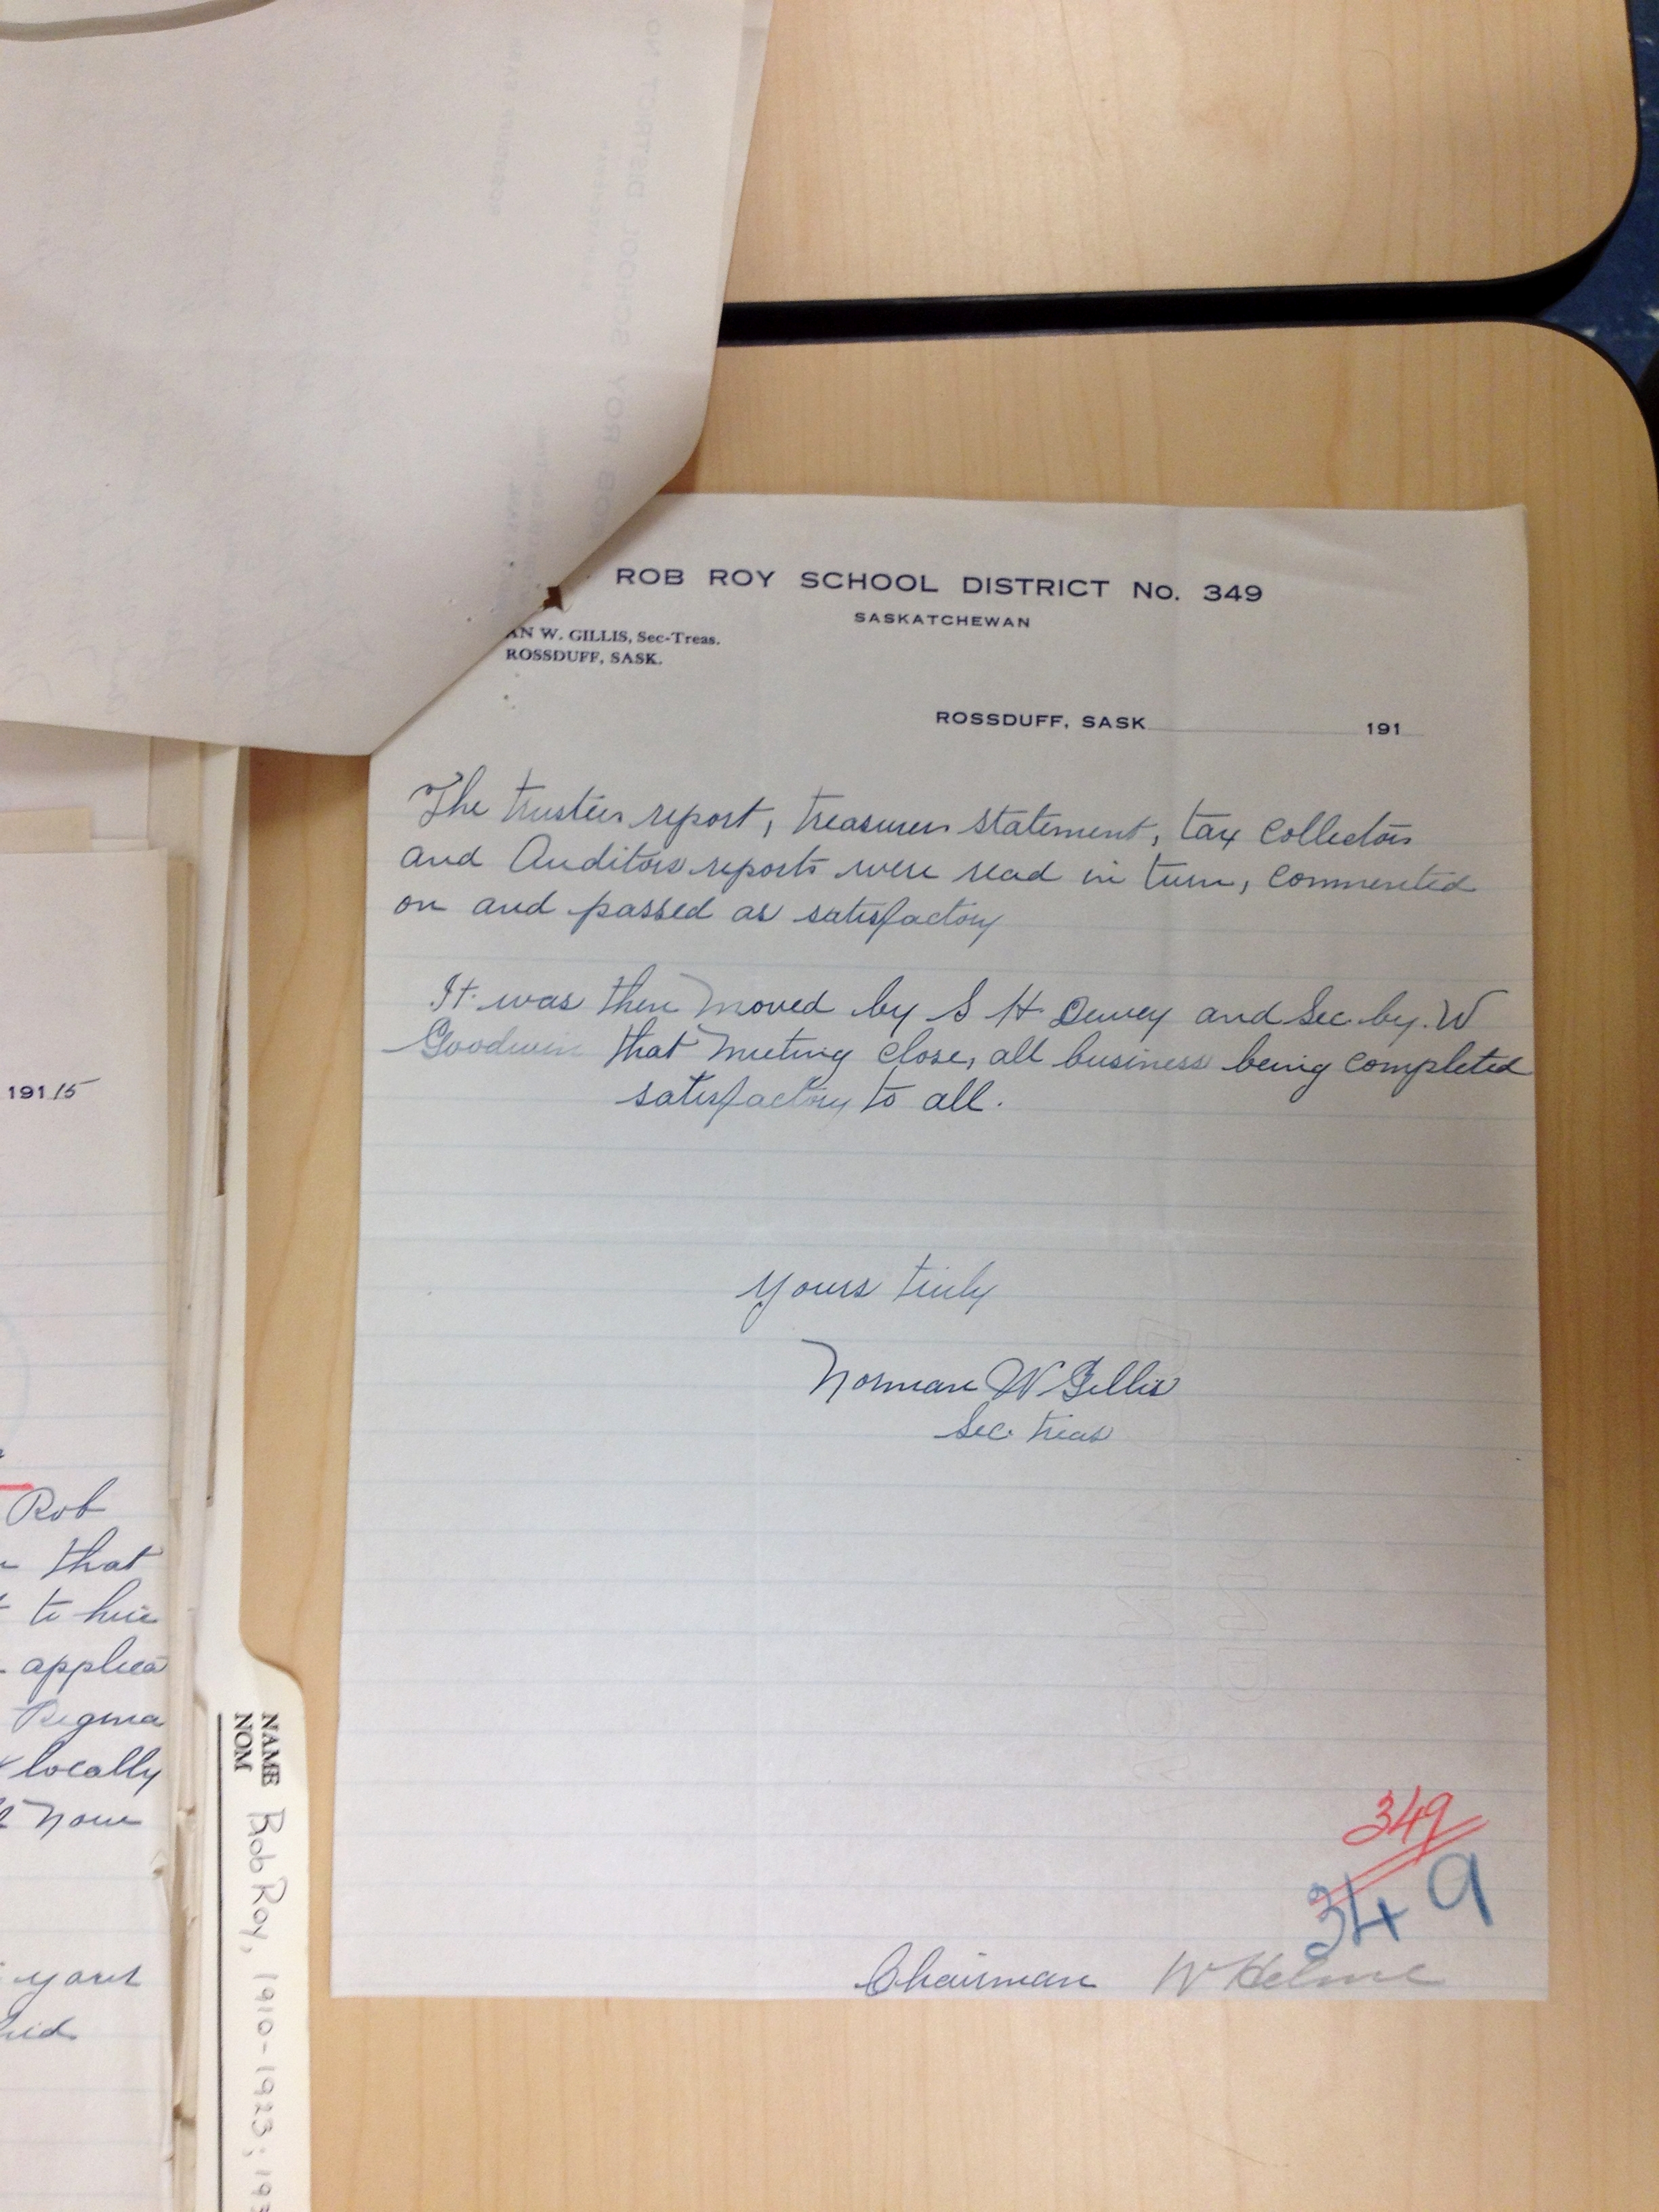 ROB ROY SCHOOL DISTRICT No. 349
SASKATCHEWAN
AN W. GILLIS, Sec-Treas.
ROSSDUFF, SASK.
ROSSDUFF, SASK 191
The trustees report, treasurers statement, tax collectors
and Auditors reports were read in turn, commented
on and passed as satisfactory
It was then moved by S H. Dewey and Sec. by. W
Goodwin that meeting close, all business being completed
satisfactory to all.
Yours truly
Norman W Gillis
Sec. treas
349
349
Chairman W Helme
19115
Rob
that
to hire
applica
Regina
locally
now
NAME
NOM
Rob Roy, 1910-1923; 193